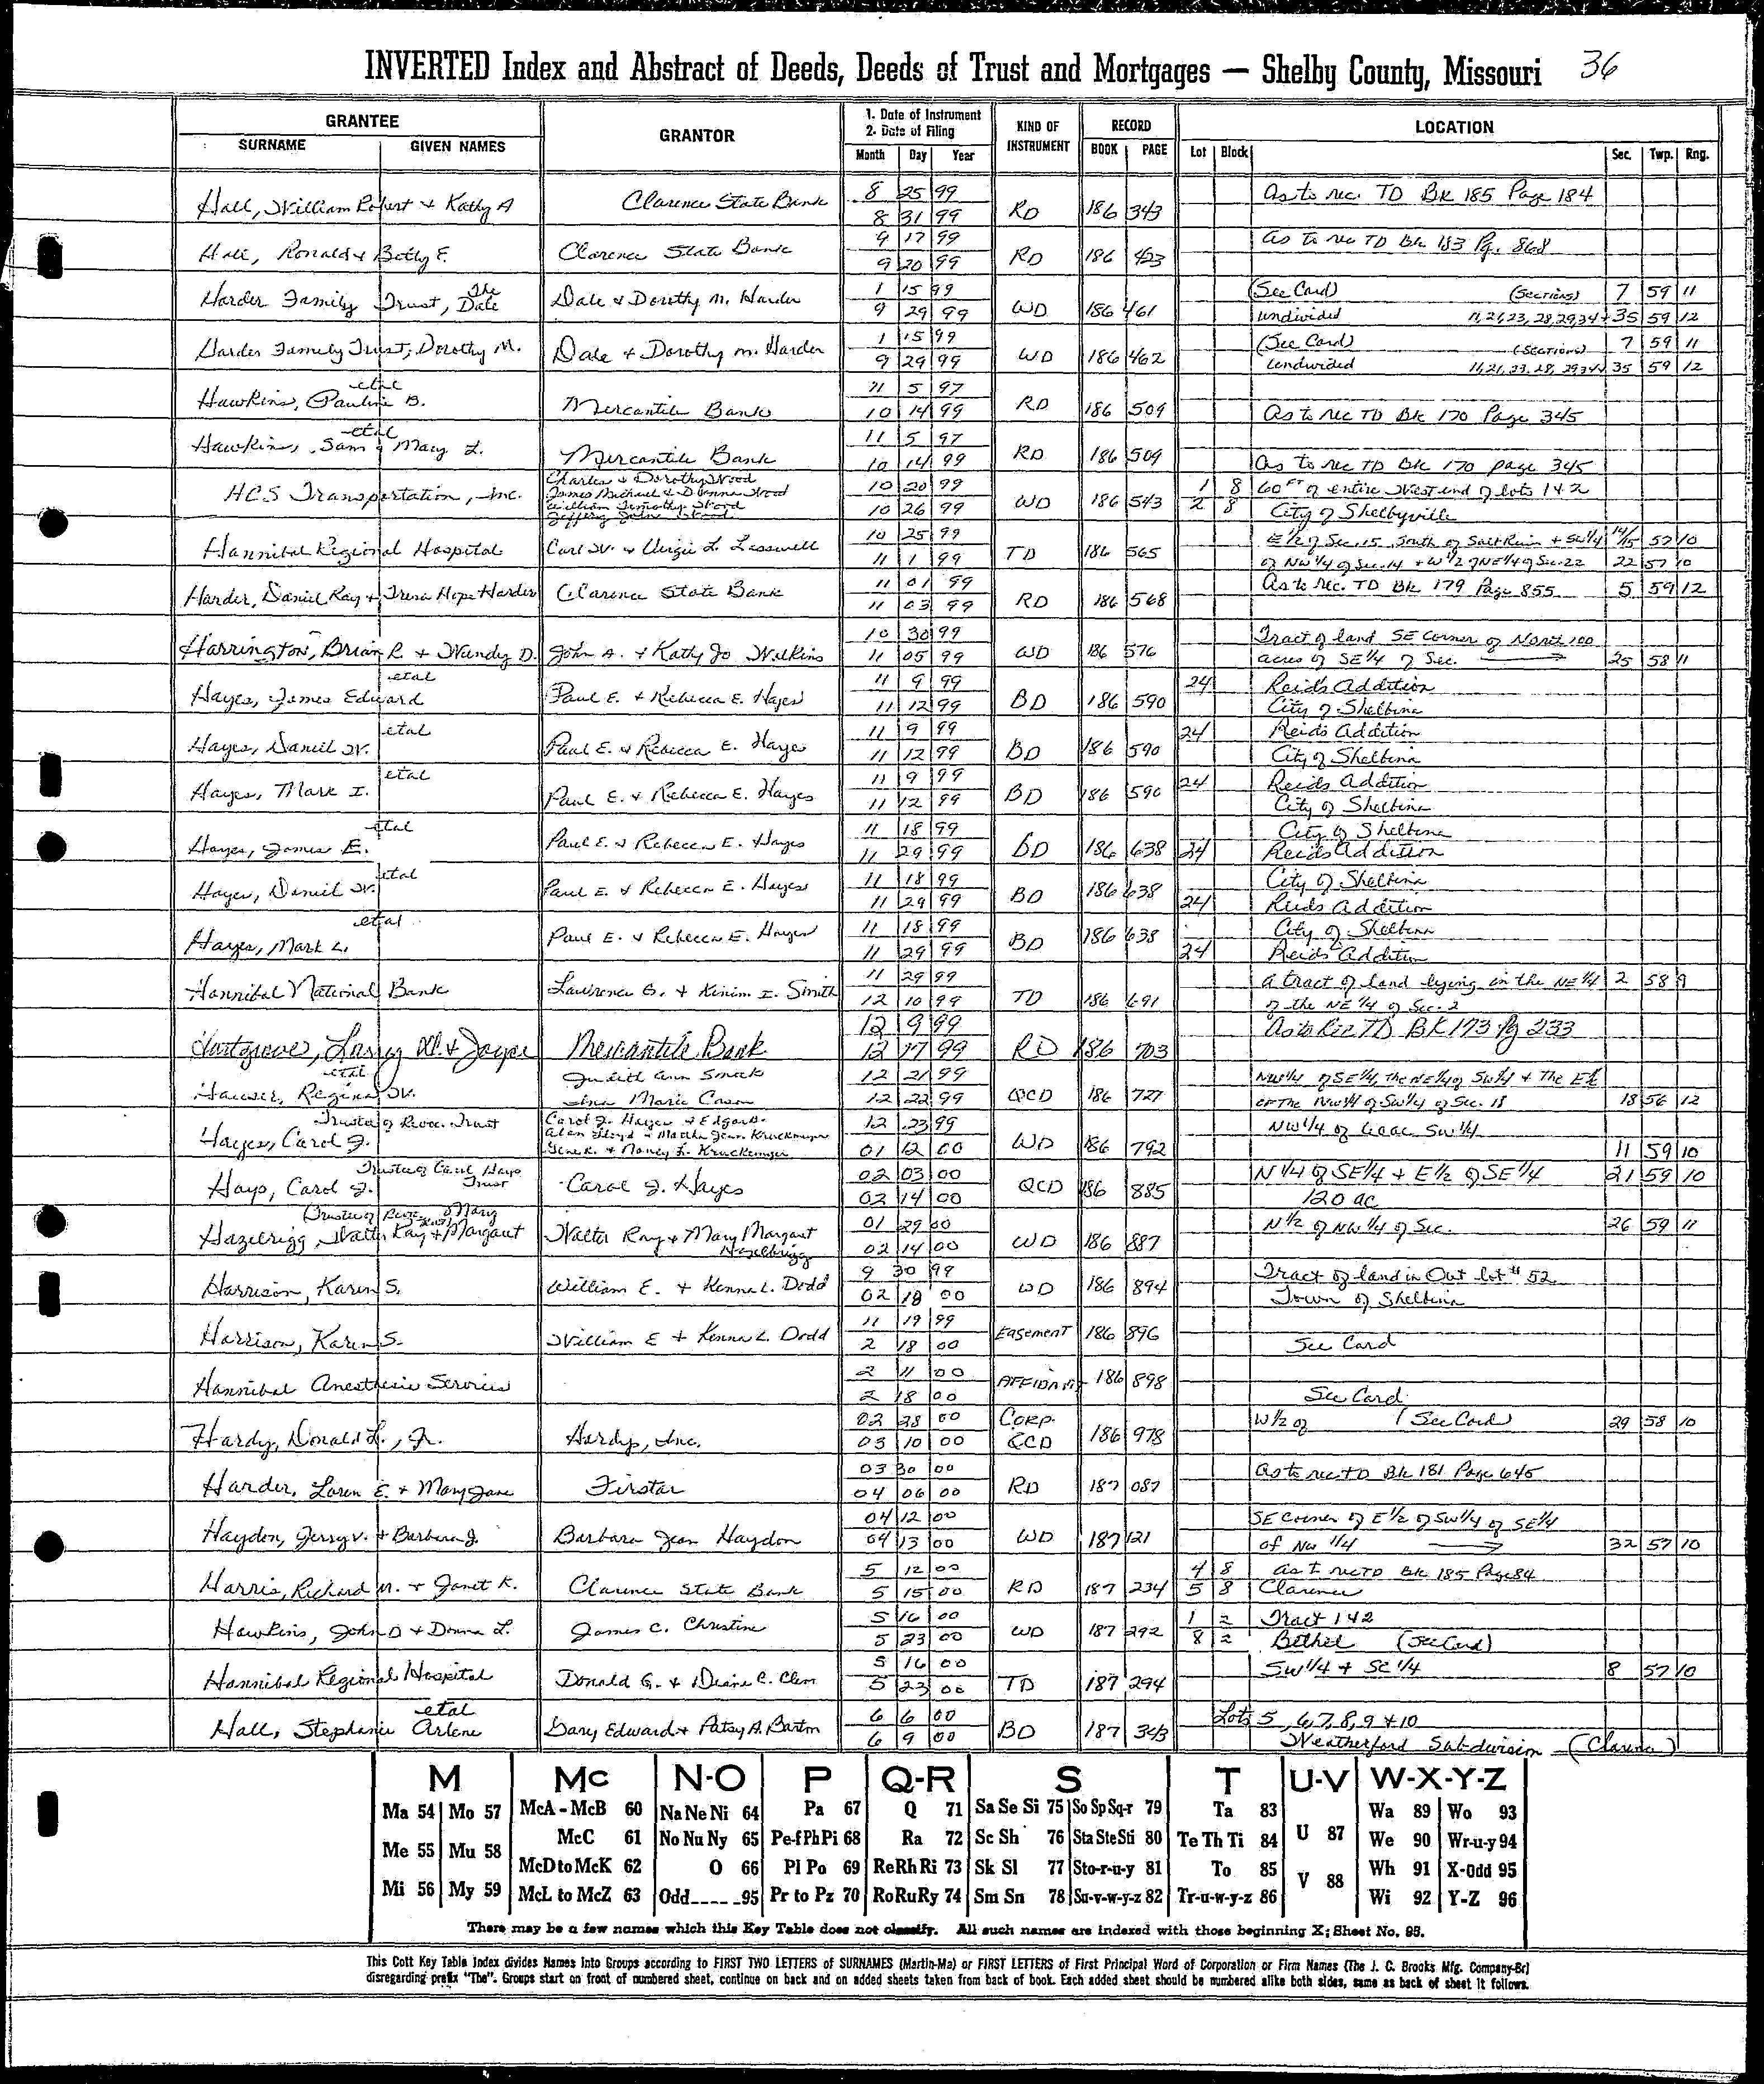 INVERTED Index and Abstract of Deeds, Deeds of Trust and Mortgages — Shelby County, Missouri 36
GRANTEE GRANTOR 1. Date of Instrument 2. Date of Filing KIND OF INSTRUMENT RECORD LOCATION
SURNAME GIVEN NAMES Month Day Year BOOK PAGE Lot Block Sec. Twp. Rng.
Hall, William Robert & Kathy A Clarence State Bank 8 25 99 RD 186 343 As to rec. TD Bk 185 Page 184
8 31 99
Hall, Ronald & Betty E. Clarence State Bank 9 17 99 RD 186 423 As to rec TD Bk 183 Pg. 868
9 20 99
Harder Family Trust, The Dale Dale & Dorothy M. Harder 1 15 99 WD 186 461 (See Card) (Sections) 7 59 11
9 29 99 undivided 11,21,23,28,29,34 + 35 59 12
Harder Family Trust, Dorothy M. Dale & Dorothy M. Harder 1 15 99 WD 186 462 (See Card) (Sections) 7 59 11
9 29 99 undivided 11,21,23,28,29,34 35 59 12
Hawkins, Pauline B. etal Mercantile Bank 11 5 97 RD 186 509
10 14 99 As to rec TD Bk 170 Page 345
Hawkins, Sam & Mary L. etal Mercantile Bank 11 5 97 RD 186 509
10 14 99 As to rec TD Bk 170 page 345
HCS Transportation, Inc. Charles & Dorothy Wood 10 20 99 WD 186 543 1 8 60 FT of entire West end of lots 1 & 2
James Michael & Donna Wood
William Timothy Wood 10 26 99 2 8 City of Shelbyville
Jeffery John Wood
Hannibal Regional Hospital Carl W. & Virgie L. Lasswell 10 25 99 TD 186 565 E 1/2 of Sec. 15 South of Salt River + SW 1/4 14/15 57 10
11 1 99 of NW 1/4 of Sec. 14 + W 1/2 of NE 1/4 of Sec. 22 22 57 10
Harder, Daniel Ray & Tresa Hope Harder Clarence State Bank 11 01 99 RD 186 568 As to rec. TD Bk 179 Page 855 5 59 12
11 03 99
Harrington, Brian R & Wendy D. John A. & Kathy Jo Wilkins 10 30 99 WD 186 576 Tract of land SE Corner of North 100
11 05 99 acres of SE 1/4 of Sec. 25 58 11
Hayes, James Edward etal Paul E. & Rebecca E. Hayes 11 9 99 BD 186 590 24 Reid's Addition
11 12 99 City of Shelbina
Hayes, Daniel W. etal Paul E. & Rebecca E. Hayes 11 9 99 BD 186 590 24 Reid's Addition
11 12 99 City of Shelbina
Hayes, Mark I. etal Paul E. & Rebecca E. Hayes 11 9 99 BD 186 590 24 Reid's Addition
11 12 99 City of Shelbina
Hayes, James E. etal Paul E. & Rebecca E. Hayes 11 18 99 BD 186 638 City of Shelbina
11 29 99 24 Reids Addition
Hayes, Daniel W. etal Paul E. & Rebecca E. Hayes 11 18 99 BD 186 638 City of Shelbina
11 29 99 24 Reids Addition
Hayes, Mark L. etal Paul E. & Rebecca E. Hayes 11 18 99 BD 186 638 City of Shelbina
11 29 99 24 Reids Addition
Hannibal National Bank Lawrence G. & I. Smith 11 29 99 TD 186 691 A tract of land lying in the NE 1/4 2 58 9
12 10 99 of the NE 1/4 of Sec. 2
Hartgrove, Larry W. & Joyce Mercantile Bank 12 9 99 RD 186 703 As to Rec TD BK 173 Pg 233
12 17 99
Hauser, Regina W. etal Judith Ann Smock 12 21 99 QCD 186 727 NW 1/4 of SE 1/4, the NE 1/4 of SW 1/4 & The E 1/2
Ina Marie Cason 12 22 99 of The NW 1/4 of SW 1/4 of Sec. 18 18 56 12
Hayes, Carol J. Trustee of Revoc. Trust Carol J. Hayes & Edgar D. 12 23 99 WD 186 792 NW 1/4 of SW 1/4
Alan Lloyd & Martha Jean Kruckemeyer
Gene R. & Nancy L. Kruckemeyer 01 12 00 11 59 10
Hays, Carol J. Trustee of Carol Hays Trust Carol J. Hayes 02 03 00 QCD 186 885 N 1/4 of SE 1/4 + E 1/2 of SE 1/4 21 59 10
02 14 00 120 ac
Hazelrigg, Walter Ray & Mary Margaret Trustee of Rvoc. Trust Walter Ray & Mary Margaret Hazelrigg 01 29 00 WD 186 887 N 1/2 of NW 1/4 of Sec. 26 59 11
02 14 00
Harrison, Karen S. William E. & Kenna L. Dodd 9 30 99 WD 186 894 Tract of land in Out lot # 52
02 18 00 Town of Shelbina
Harrison, Karen S. William E & Kenna L. Dodd 11 19 99 Easement 186 896
2 18 00 See Card
Hannibal Anesthesia Services 2 11 00 AFFIDAVIT 186 898
2 18 00 See Card
Hardy, Donald L., Jr. Hardys, Inc. 02 28 00 Corp. QCD 186 978 W 1/2 of (See Card) 29 58 10
03 10 00
Harder, Loren E. & Mary Jane Firstar 03 30 00 RD 187 087 As to rec TD Bk 181 Page 645
04 06 00
Haydon, Jerry V. & Barbara J. Barbara Jean Haydon 04 12 00 WD 187 121 SE corner of E 1/2 of SW 1/4 of SE 1/4
04 13 00 of NW 1/4 32 57 10
Harris, Richard M. & Janet K. Clarence State Bank 5 12 00 RD 187 234 4 8 As to rec TD Bk 185 Page 84
5 15 00 5 8 Clarence
Hawkins, John D & Donna L. James C. Christine 5 16 00 WD 187 292 1 2 Tract 1 & 2
5 23 00 8 2 Bethel (See Card)
Hannibal Regional Hospital Donald G. & Diane C. Clem 5 16 00 TD 187 294 SW 1/4 + SE 1/4 8 57 10
5 23 00
Hall, Stephanie Arlene etal Gary Edward & Patsy A. Barton 6 6 00 BD 187 343 Lots 5, 6, 7, 8, 9 + 10
6 9 00 Weatherford Subdivision (Clarence)
M Mc N-O P Q-R S T U-V W-X-Y-Z
Ma 54 Mo 57 McA - McB 60 Na Ne Ni 64 Pa 67 Q 71 Sa Se Si 75 So Sp Sq-r 79 Ta 83 U 87 Wa 89 Wo 93
Me 55 Mu 58 McC 61 No Nu Ny 65 Pe-f Ph Pi 68 Ra 72 Sc Sh 76 Sta Ste Sti 80 Te Th Ti 84 We 90 Wr-u-y 94
McD to McK 62 O 66 Pl Po 69 Re Rh Ri 73 Sk Sl 77 Sto-r-u-y 81 To 85 V 88 Wh 91 X-Odd 95
Mi 56 My 59 McL to McZ 63 Odd 95 Pr to Pz 70 Ro Ru Ry 74 Sm Sn 78 Su-v-w-y-z 82 Tr-u-w-y-z 86 Wi 92 Y-Z 96
There may be a few names which this Key Table does not classify. All such names are indexed with those beginning X; Sheet No. 95.
This Cott Key Table Index divides Names Into Groups according to FIRST TWO LETTERS of SURNAMES (Martin-Ma) or FIRST LETTERS of First Principal Word of Corporation or Firm Names (The J. C. Brooks Mfg. Company-Br)
disregarding prefix "The". Groups start on front of numbered sheet, continue on back and on added sheets taken from back of book. Each added sheet should be numbered alike both sides, same as back of sheet it follows.